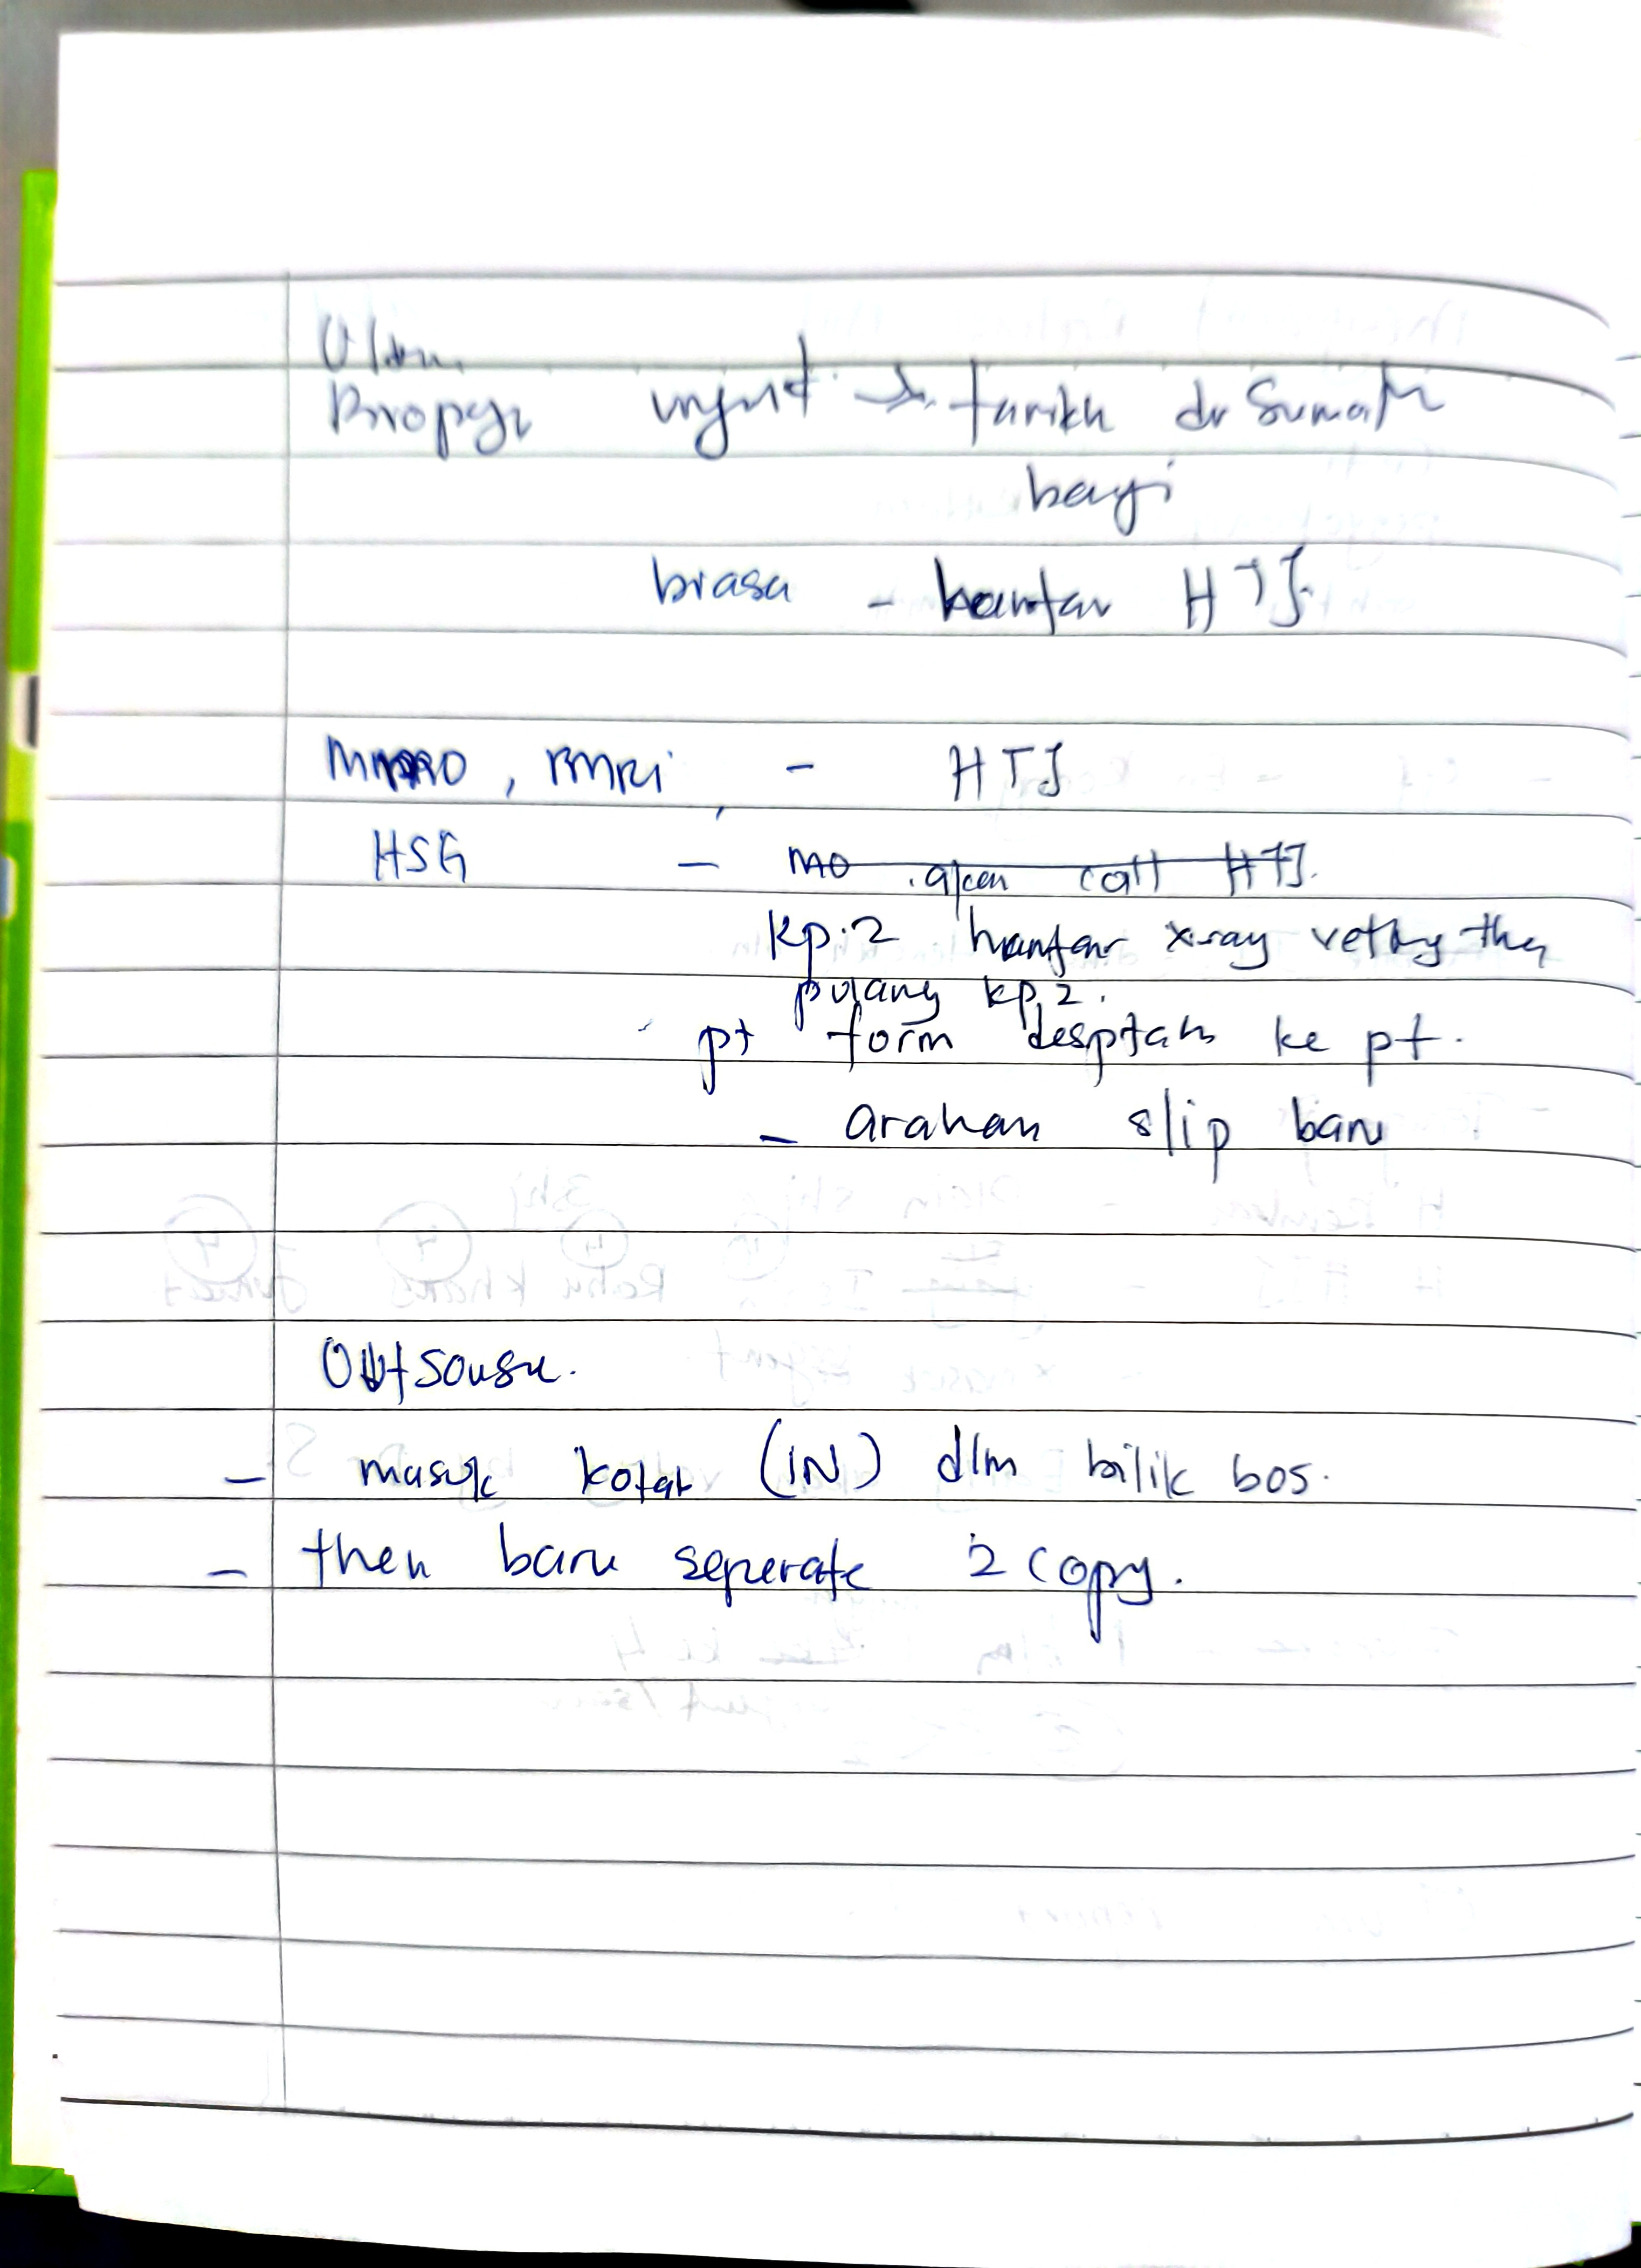 Biopsy urgent → tarikh dr Sumath
bagi
biasa - hantar HTJ.
, BMRI - HTJ
HSG - mo akan call HTJ.
Kp.2 hantar x-ray vetting then
pulang kp.2.
pt form despatch ke pt.
- arahan slip baru
Outsouse.
- masuk kotak (IN) dlm bilik bos.
- then baru seperate 2 copy.